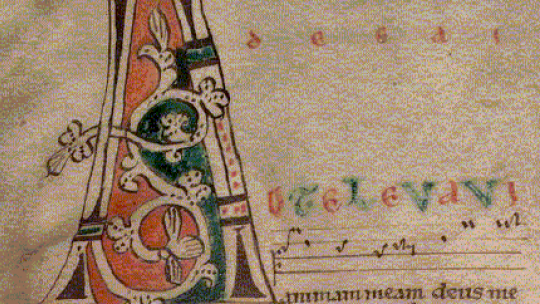 AD TE LEVAVI
animam meam deus me